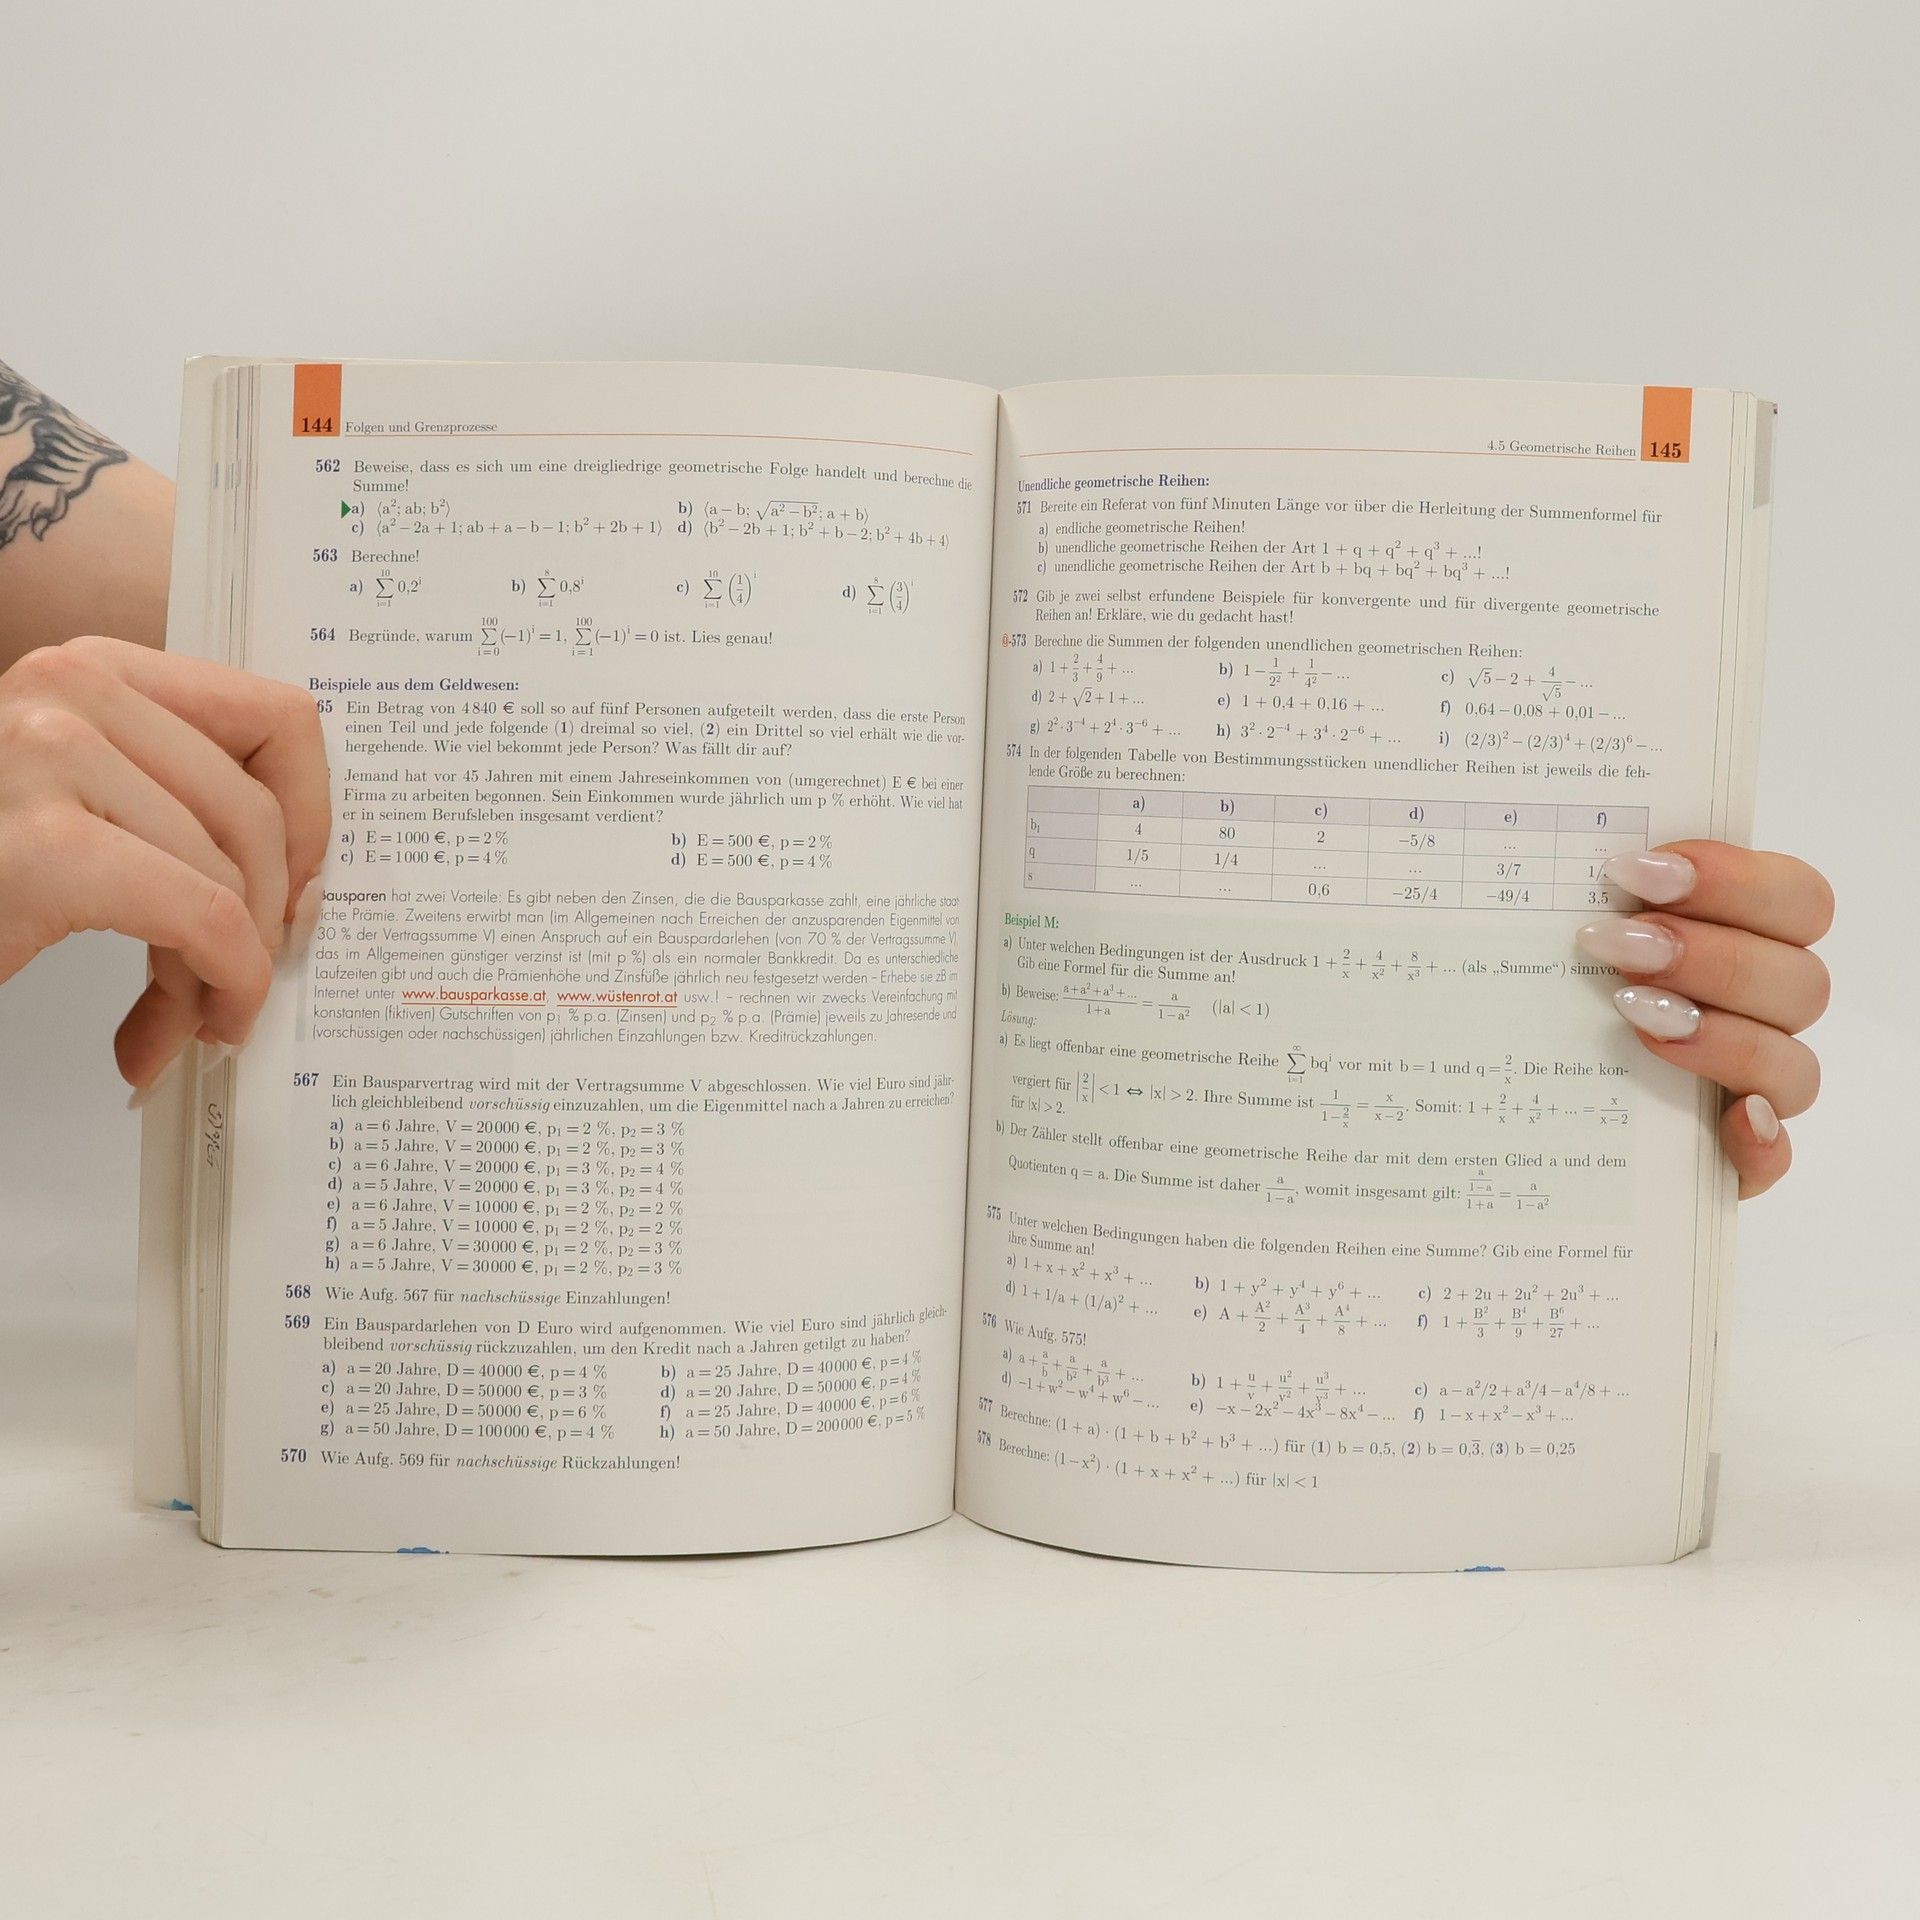 144 Folgen und Grenzprozesse
562 Beweise, dass es sich um eine dreigliedrige geometrische Folge handelt und berechne die
Summe!
a) ⟨a²; ab; b²⟩ b) ⟨a − b; √(a² − b²); a + b⟩
c) ⟨a² − 2a + 1; ab + a − b − 1; b² + 2b + 1⟩ d) ⟨b² − 2b + 1; b² + b − 2; b² + 4b + 4⟩
563 Berechne!
a) ∑_{i=1}^{10} 0,2^i b) ∑_{i=1}^{8} 0,8^i c) ∑_{i=1}^{10} (1/4)^i d) ∑_{i=1}^{8} (3/4)^i
564 Begründe, warum ∑_{i=0}^{100} (−1)^i = 1, ∑_{i=1}^{100} (−1)^i = 0 ist. Lies genau!
Beispiele aus dem Geldwesen:
65 Ein Betrag von 4840 € soll so auf fünf Personen aufgeteilt werden, dass die erste Person
einen Teil und jede folgende (1) dreimal so viel, (2) ein Drittel so viel erhält wie die vor-
hergehende. Wie viel bekommt jede Person? Was fällt dir auf?
Jemand hat vor 45 Jahren mit einem Jahreseinkommen von (umgerechnet) E € bei einer
Firma zu arbeiten begonnen. Sein Einkommen wurde jährlich um p % erhöht. Wie viel hat
er in seinem Berufsleben insgesamt verdient?
a) E = 1000 €, p = 2 % b) E = 500 €, p = 2 %
c) E = 1000 €, p = 4 % d) E = 500 €, p = 4 %
Bausparen hat zwei Vorteile: Es gibt neben den Zinsen, die die Bausparkasse zahlt, eine jährliche staat-
liche Prämie. Zweitens erwirbt man (im Allgemeinen nach Erreichen der anzusparenden Eigenmittel von
30 % der Vertragssumme V) einen Anspruch auf ein Bauspardarlehen (von 70 % der Vertragssumme V),
das im Allgemeinen günstiger verzinst ist (mit p %) als ein normaler Bankkredit. Da es unterschiedliche
Laufzeiten gibt und auch die Prämienhöhe und Zinsfüße jährlich neu festgesetzt werden – Erhebe sie zB im
Internet unter www.bausparkasse.at, www.wüstenrot.at usw.! – rechnen wir zwecks Vereinfachung mit
konstanten (fiktiven) Gutschriften von p₁ % p.a. (Zinsen) und p₂ % p.a. (Prämie) jeweils zu Jahresende und
(vorschüssigen oder nachschüssigen) jährlichen Einzahlungen bzw. Kreditrückzahlungen.
567 Ein Bausparvertrag wird mit der Vertragsumme V abgeschlossen. Wie viel Euro sind jähr-
lich gleichbleibend vorschüssig einzuzahlen, um die Eigenmittel nach a Jahren zu erreichen?
a) a = 6 Jahre, V = 20000 €, p₁ = 2 %, p₂ = 3 %
b) a = 5 Jahre, V = 20000 €, p₁ = 2 %, p₂ = 3 %
c) a = 6 Jahre, V = 20000 €, p₁ = 3 %, p₂ = 4 %
d) a = 5 Jahre, V = 20000 €, p₁ = 3 %, p₂ = 4 %
e) a = 6 Jahre, V = 10000 €, p₁ = 2 %, p₂ = 2 %
f) a = 5 Jahre, V = 10000 €, p₁ = 2 %, p₂ = 2 %
g) a = 6 Jahre, V = 30000 €, p₁ = 2 %, p₂ = 3 %
h) a = 5 Jahre, V = 30000 €, p₁ = 2 %, p₂ = 3 %
568 Wie Aufg. 567 für nachschüssige Einzahlungen!
569 Ein Bauspardarlehen von D Euro wird aufgenommen. Wie viel Euro sind jährlich gleich-
bleibend vorschüssig rückzuzahlen, um den Kredit nach a Jahren getilgt zu haben?
a) a = 20 Jahre, D = 40000 €, p = 4 % b) a = 25 Jahre, D = 40000 €, p = 4 %
c) a = 20 Jahre, D = 50000 €, p = 3 % d) a = 20 Jahre, D = 50000 €, p = 4 %
e) a = 25 Jahre, D = 50000 €, p = 6 % f) a = 25 Jahre, D = 40000 €, p = 6 %
g) a = 50 Jahre, D = 100000 €, p = 4 % h) a = 50 Jahre, D = 200000 €, p = 5 %
570 Wie Aufg. 569 für nachschüssige Rückzahlungen!
4.5 Geometrische Reihen 145
Unendliche geometrische Reihen:
571 Bereite ein Referat von fünf Minuten Länge vor über die Herleitung der Summenformel für
a) endliche geometrische Reihen!
b) unendliche geometrische Reihen der Art 1 + q + q² + q³ + ...!
c) unendliche geometrische Reihen der Art b + bq + bq² + bq³ + ...!
572 Gib je zwei selbst erfundene Beispiele für konvergente und für divergente geometrische
Reihen an! Erkläre, wie du gedacht hast!
573 Berechne die Summen der folgenden unendlichen geometrischen Reihen:
a) 1 + 2/3 + 4/9 + ... b) 1 − 1/2² + 1/4² − ... c) √5 − 2 + 4/√5 − ...
d) 2 + √2 + 1 + ... e) 1 + 0,4 + 0,16 + ... f) 0,64 − 0,08 + 0,01 − ...
g) 2² · 3⁻⁴ + 2⁴ · 3⁻⁶ + ... h) 3² · 2⁻⁴ + 3⁴ · 2⁻⁶ + ... i) (2/3)² − (2/3)⁴ + (2/3)⁶ − ...
574 In der folgenden Tabelle von Bestimmungsstücken unendlicher Reihen ist jeweils die feh-
lende Größe zu berechnen:
a) b) c) d) e) f)
b₁ 4 80 2 −5/8 ... ...
q 1/5 1/4 ... ... 3/7 1/
s ... ... 0,6 −25/4 −49/4 3,5
Beispiel M:
a) Unter welchen Bedingungen ist der Ausdruck 1 + 2/x + 4/x² + 8/x³ + ... (als „Summe“) sinnvo
Gib eine Formel für die Summe an!
b) Beweise: (a+a²+a³+...)/(1+a) = a/(1−a²) (|a| < 1)
Lösung:
a) Es liegt offenbar eine geometrische Reihe ∑_{i=1}^{∞} bq^i vor mit b = 1 und q = 2/x. Die Reihe kon-
vergiert für |2/x| < 1 ⇔ |x| > 2. Ihre Summe ist 1/(1−2/x) = x/(x−2). Somit: 1 + 2/x + 4/x² + ... = x/(x−2)
für |x| > 2.
b) Der Zähler stellt offenbar eine geometrische Reihe dar mit dem ersten Glied a und dem
Quotienten q = a. Die Summe ist daher a/(1−a), womit insgesamt gilt: (a/(1−a))/(1+a) = a/(1−a²)
575 Unter welchen Bedingungen haben die folgenden Reihen eine Summe? Gib eine Formel für
ihre Summe an!
a) 1 + x + x² + x³ + ... b) 1 + y² + y⁴ + y⁶ + ... c) 2 + 2u + 2u² + 2u³ + ...
d) 1 + 1/a + (1/a)² + ... e) A + A²/2 + A³/4 + A⁴/8 + ... f) 1 + B²/3 + B⁴/9 + B⁶/27 + ...
576 Wie Aufg. 575!
a) a + a/b + a/b² + a/b³ + ... b) 1 + u/v + u²/v² + u³/v³ + ... c) a − a²/2 + a³/4 − a⁴/8 + ...
d) −1 + w² − w⁴ + w⁶ − ... e) −x − 2x² − 4x³ − 8x⁴ − ... f) 1 − x + x² − x³ + ...
577 Berechne: (1 + a) · (1 + b + b² + b³ + ...) für (1) b = 0,5, (2) b = 0,3̅, (3) b = 0,25
578 Berechne: (1 − x²) · (1 + x + x² + ...) für |x| < 1